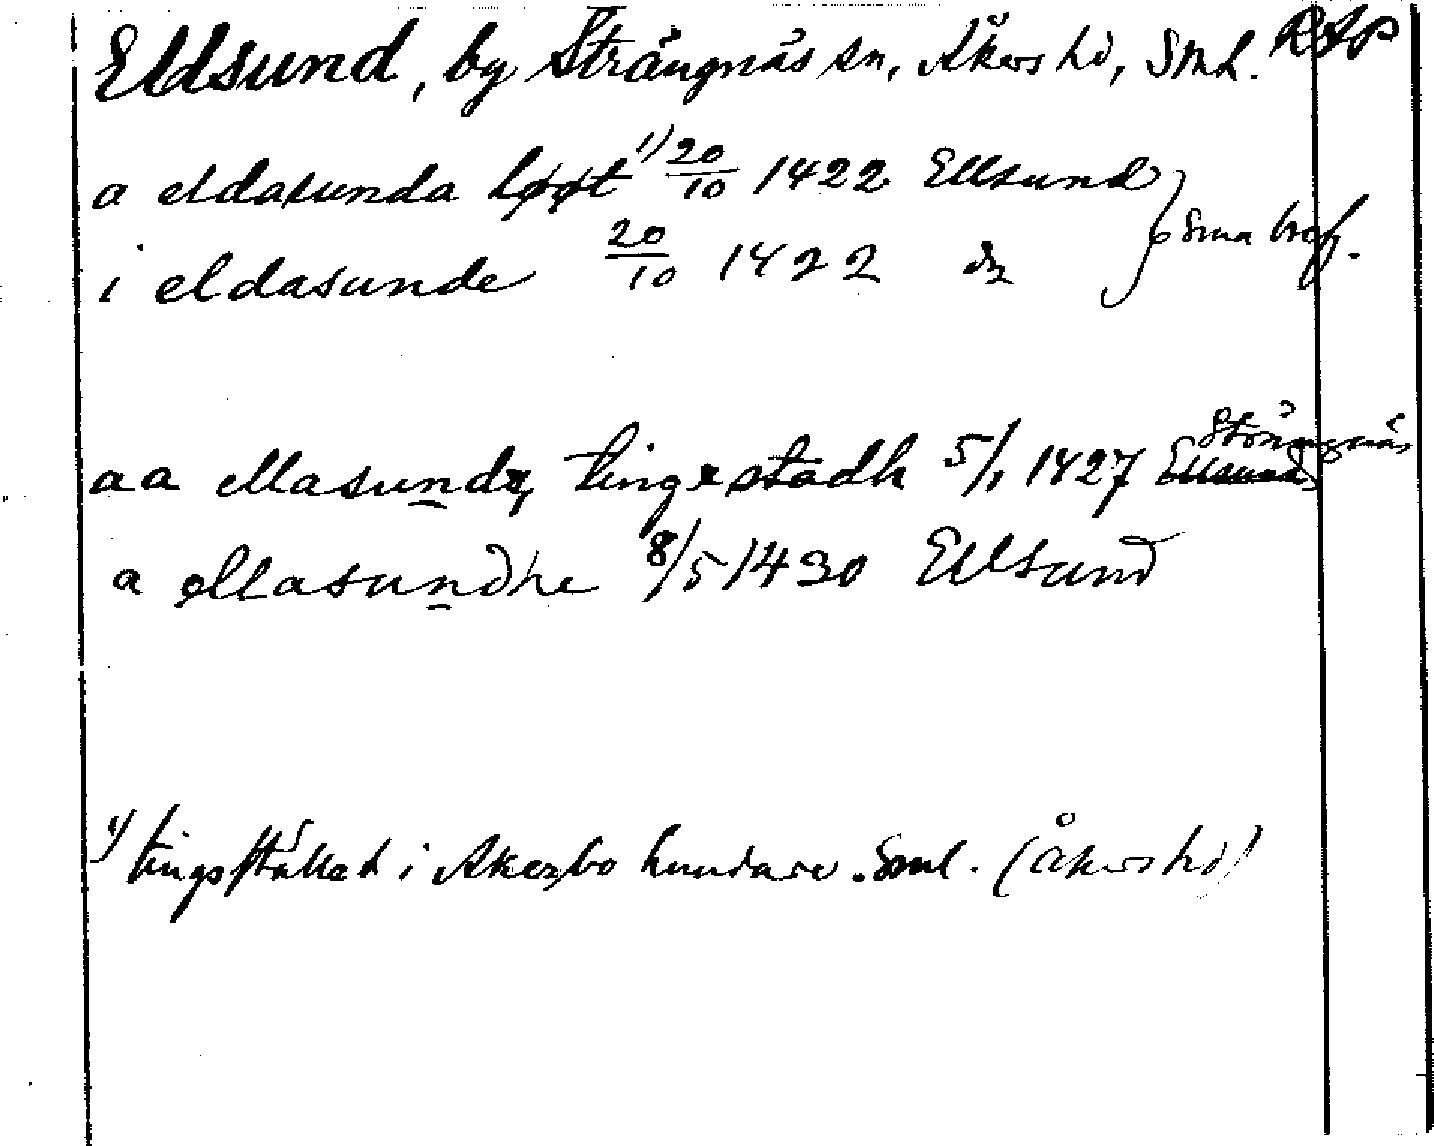 Eldsund, by Strängnäs sn, Åkers hd, Sml. RAp
a eldasunda høøt ¹⁾ 20/10 1422 Ellsund
i eldasunde 20/10 1422 do } Sma bref.
Strängnäs
aa ellasundæ tingxstadh 5/1 1427 Ellsund
a ellasundhe 8/5 1430 Ellsund
1) tingsstället i Akerbo hundare. Sml. (Åkers hd)